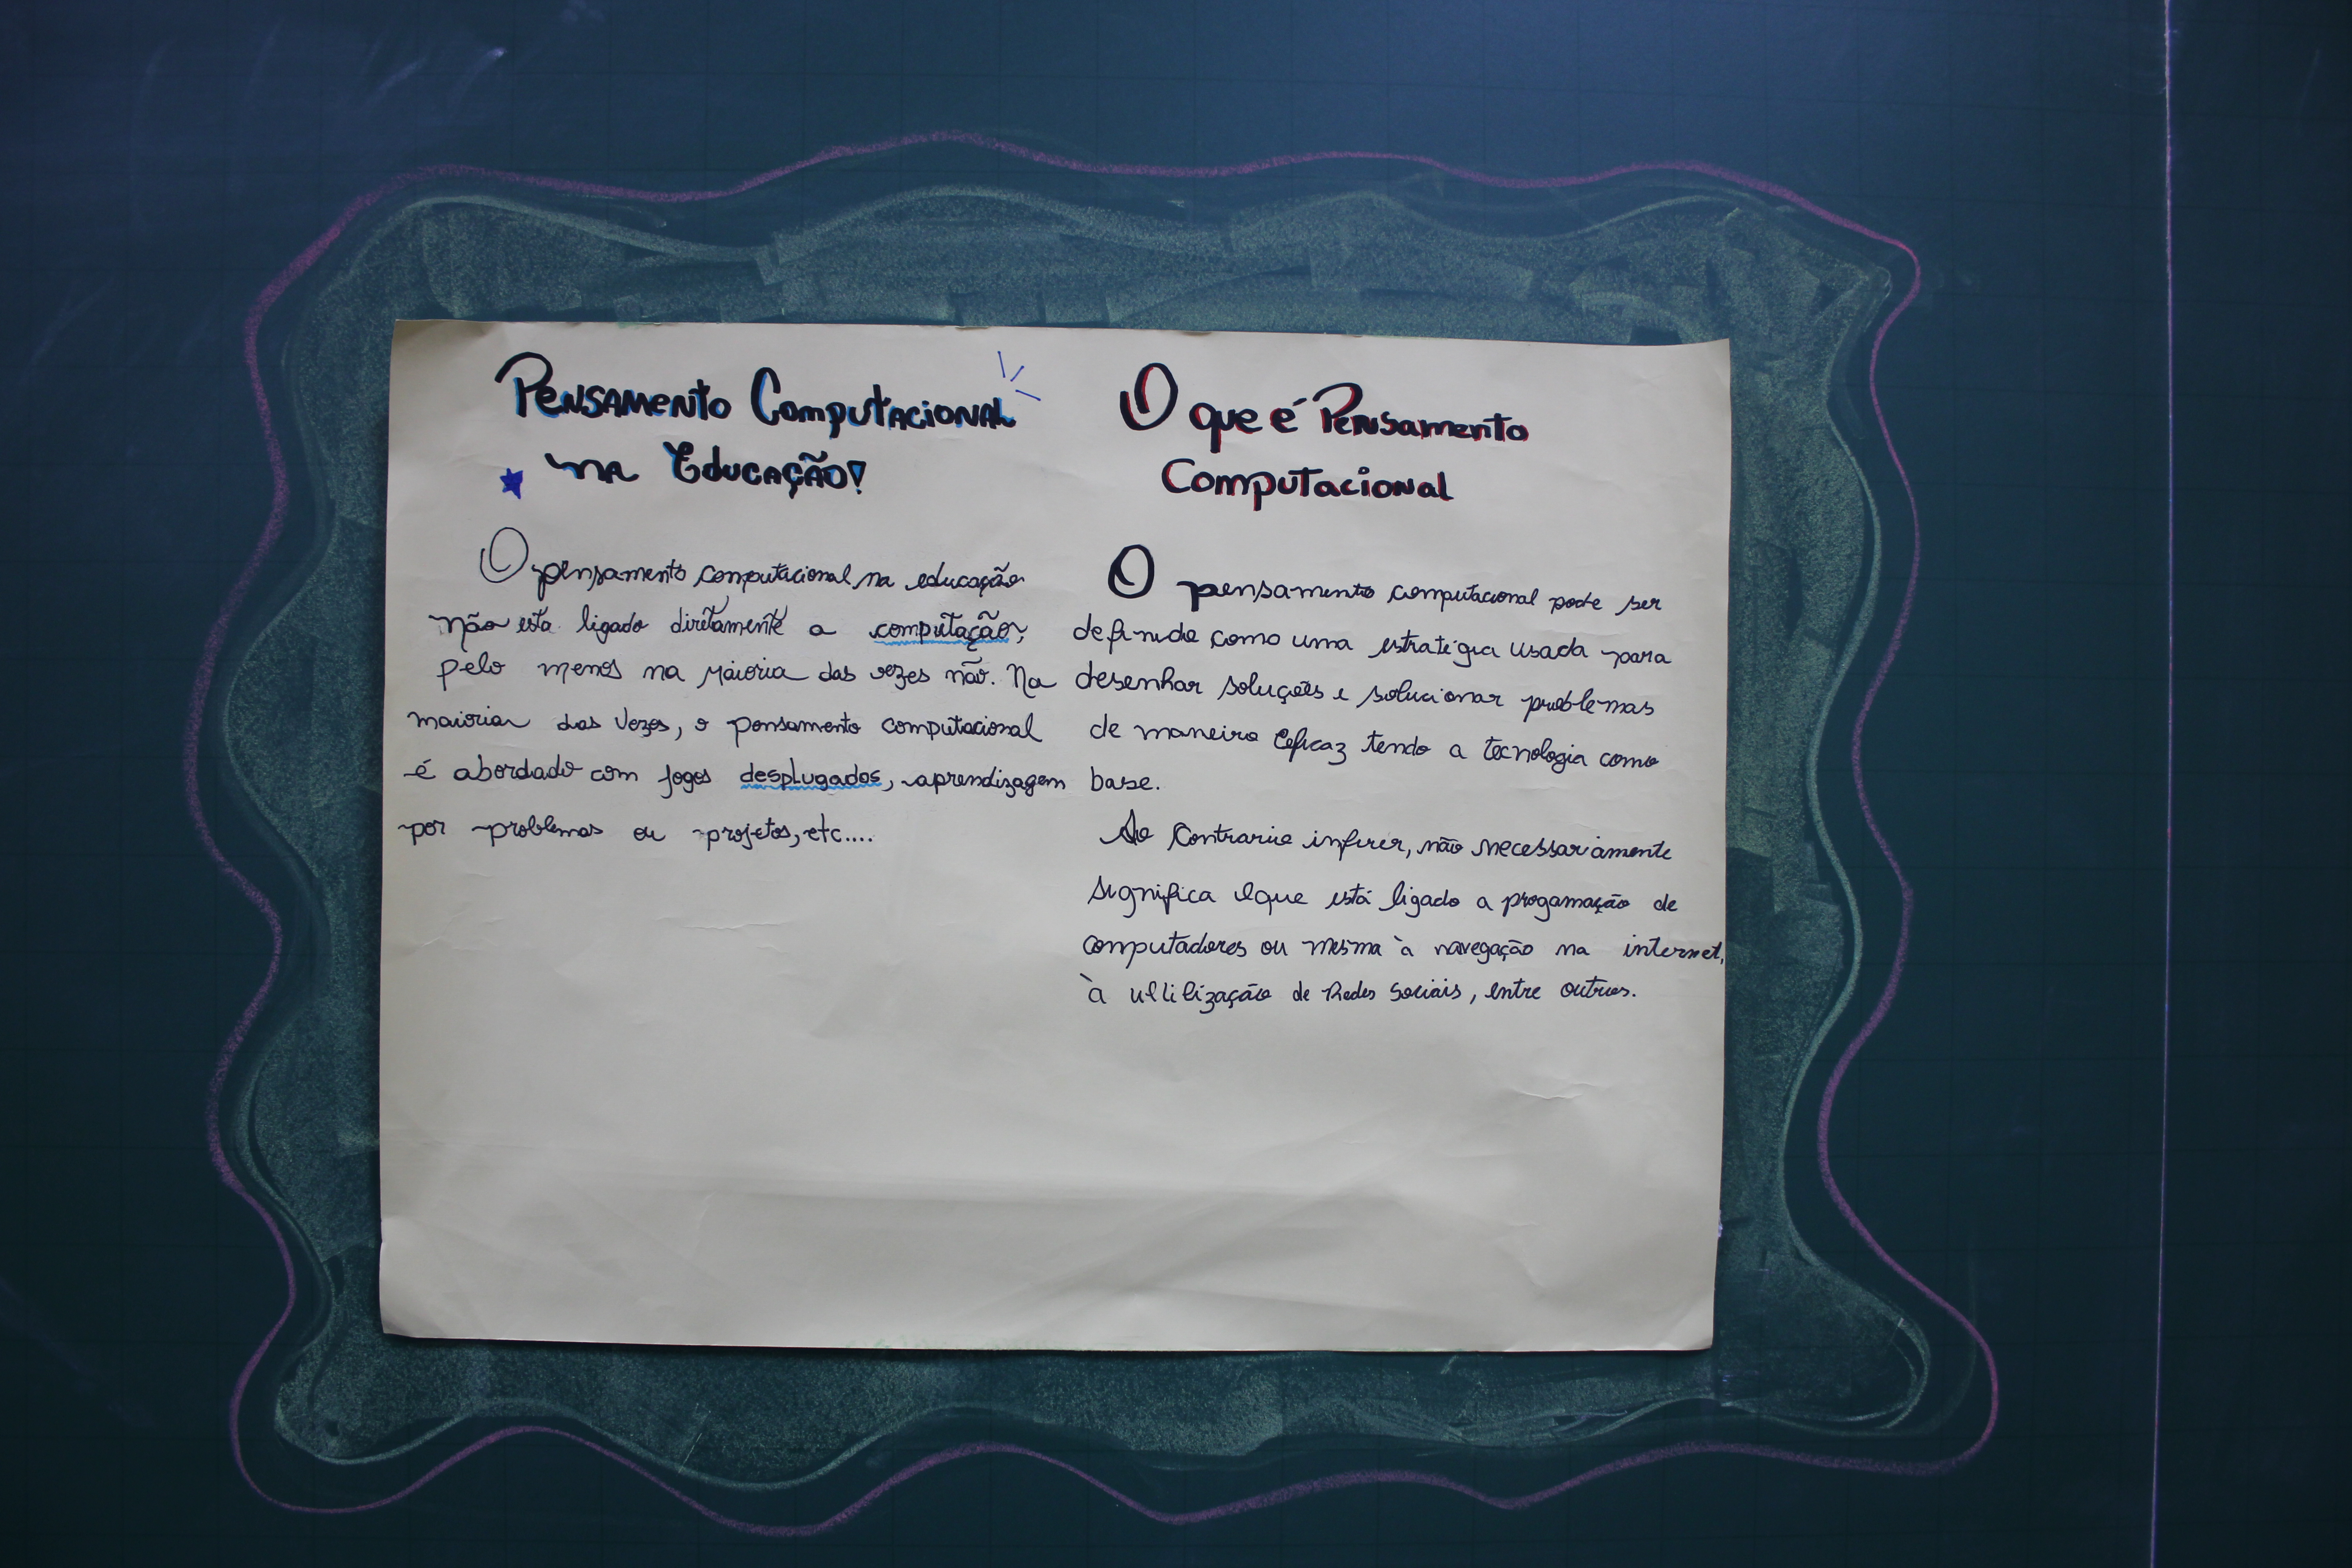 Pensamento Computacional
na Educação!
O pensamento computacional na educação
não esta ligado diretamente a computação,
pelo menos na maioria das vezes não. Na
maioria das vezes, o pensamento computacional
é abordado com jogos desplugados, aprendizagem
por problemas ou projetos, etc....
O que é Pensamento
Computacional
O pensamento computacional pode ser
definido como uma estratégia usada para
desenhar soluções e solucionar problemas
de maneira eficaz tendo a tecnologia como
base.
Ao contrario inferir, não necessariamente
significa que está ligado a progamação de
computadores ou mesma à navegação na internet,
à utilização de Redes Sociais, entre outros.